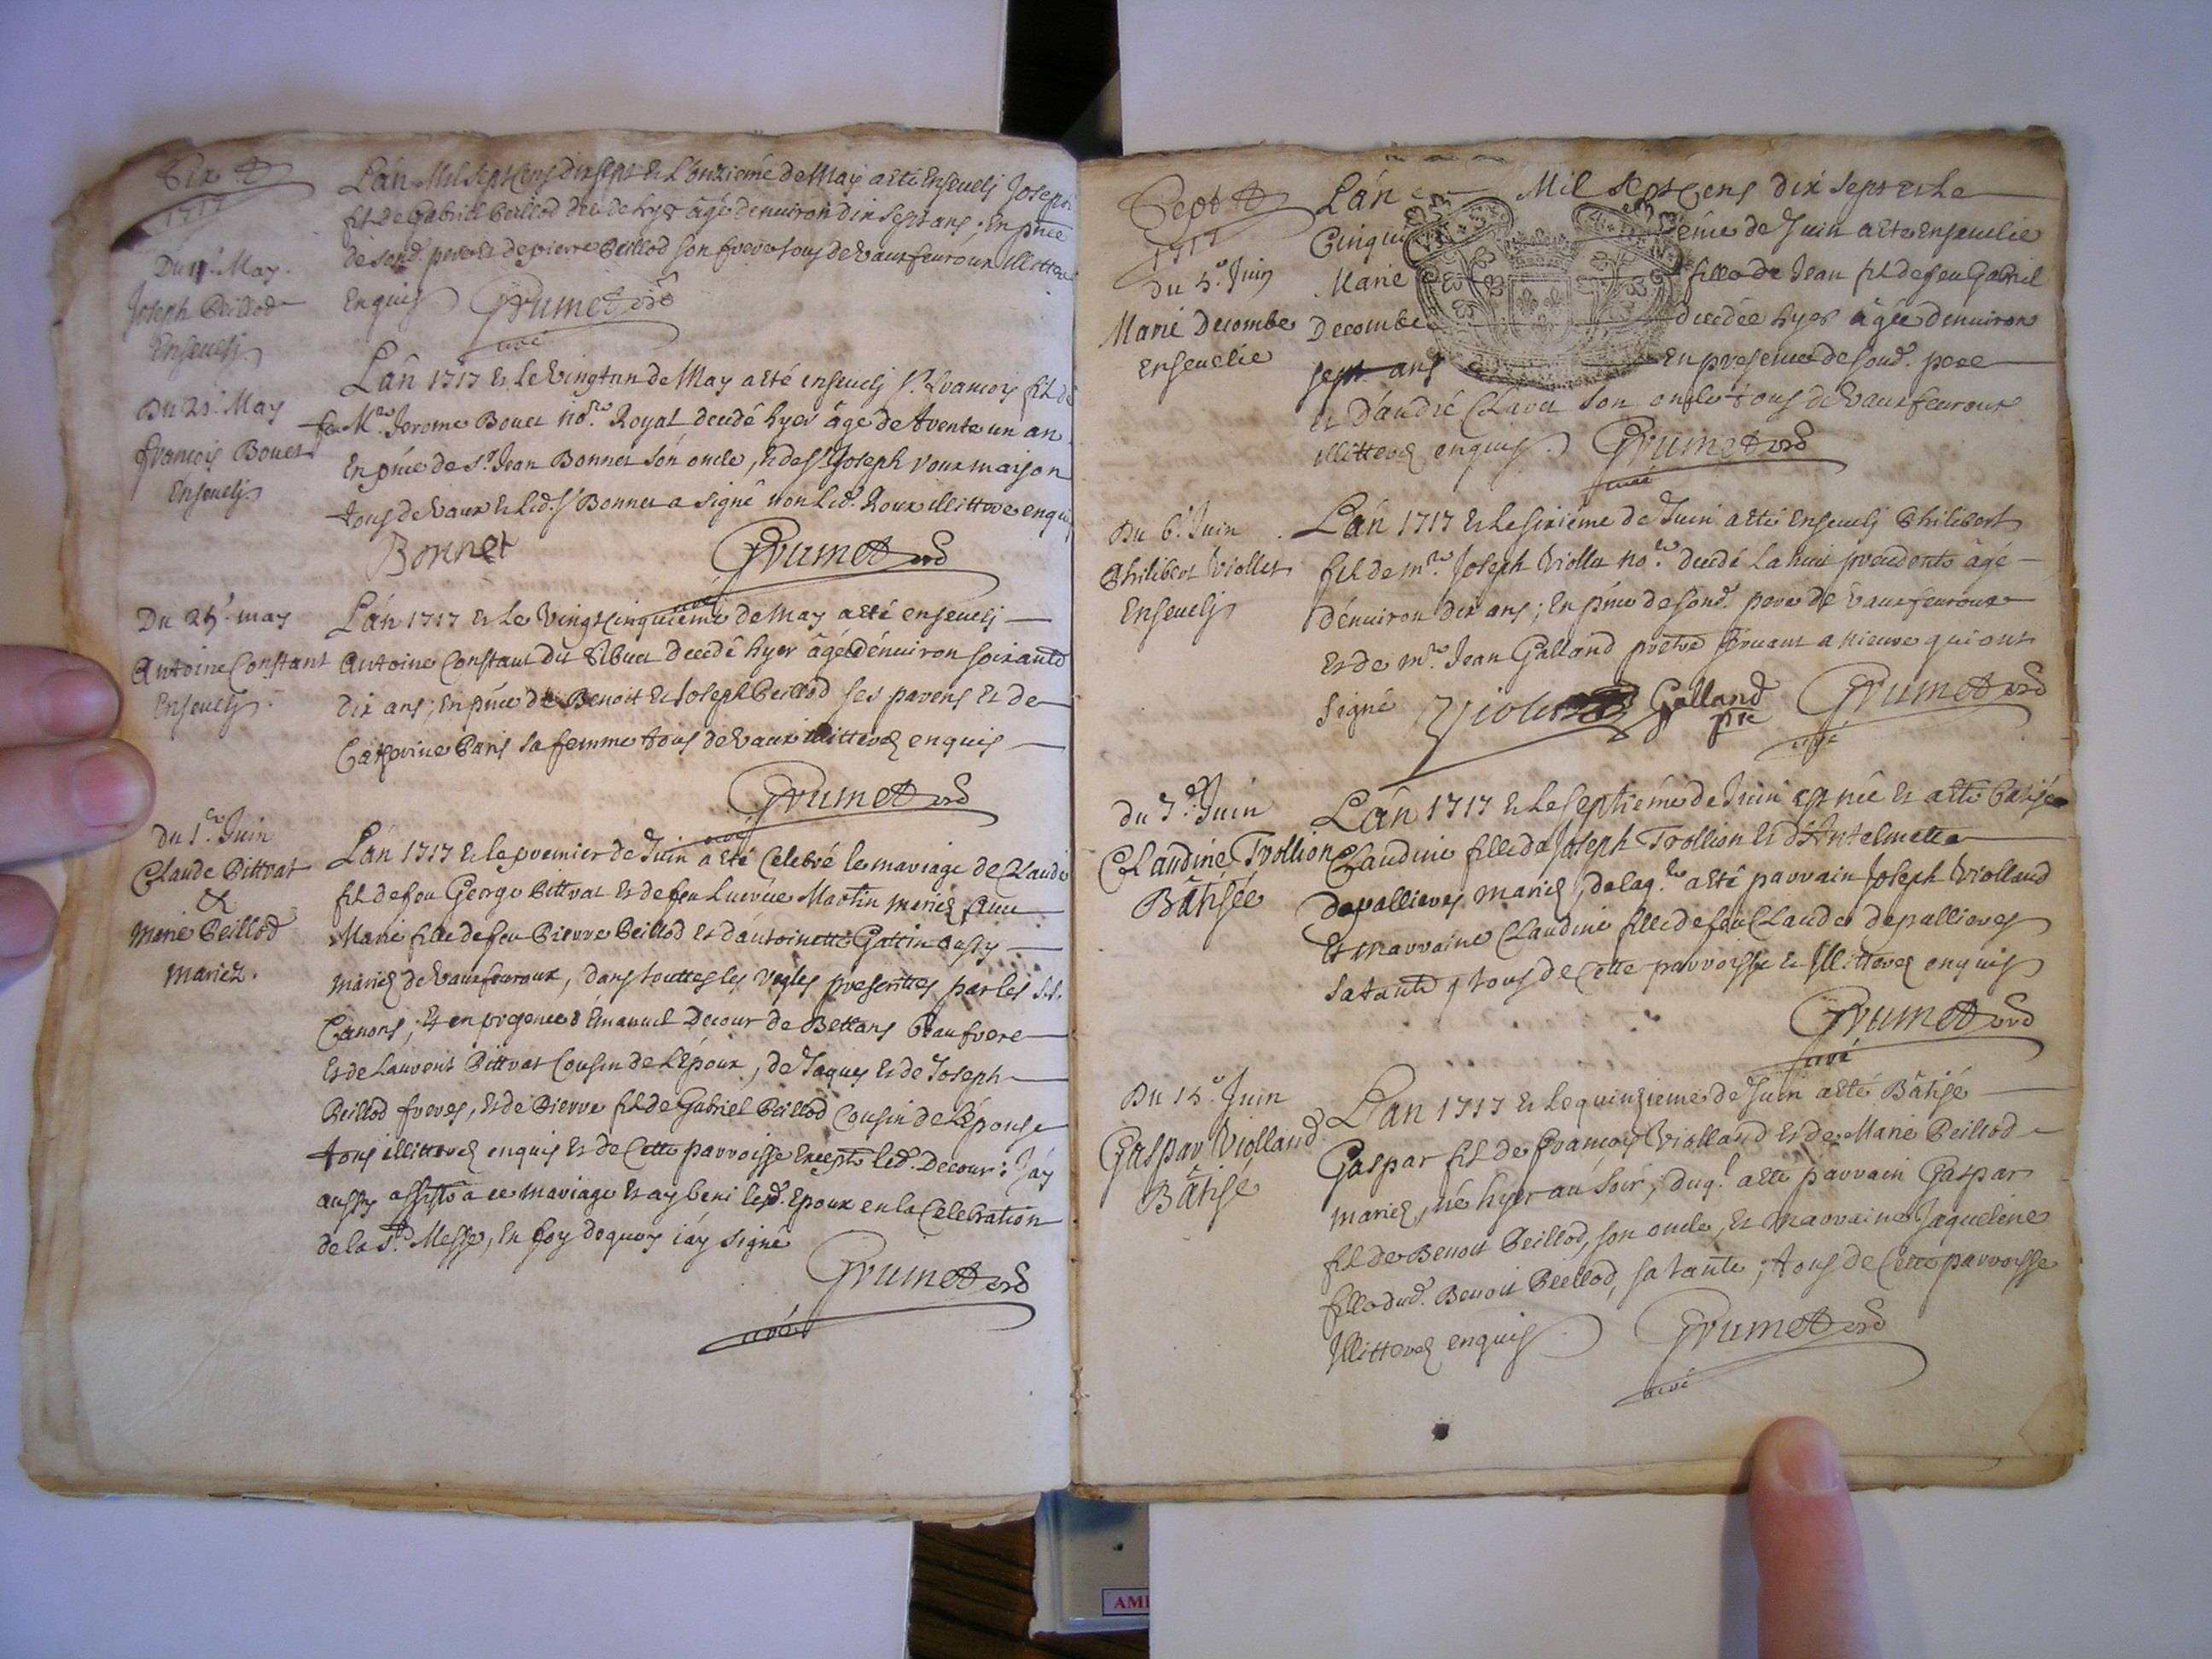 Six
1717
Du 11.e May.
Joseph Beillod
Ensevelj
L'an Mil Sept Cens dix sept et L'onzieme de May a eté Ensevelj Joseph
fil de Gabriel Beillod decedé hyer âgé denuiron dix sept ans; En pnce
de sond. pere et de pierre Beillod son frere tous de Vauxfeuroux illitterez
Enquis Grumet
curé
Du 21.e May
François Bonet
Ensevelj
L'an 1717 et Le Vingt un de May a eté ensevelj Sr. François fil de
feu Mre. Jerome Bonet nore. Royal decedé hyer âgé de trente un an
En pnce de Sr. Jean Bonnet son oncle, et de Sr. Joseph roux maison
tous de Vaux et Led. Sr Bonnet a signé non Led. Roux illittere enquis
Bonnet Grumet
curé
Du 25.e may
Antoine Constant
Ensevelj
L'an 1717 et Le Vingt cinquieme de May a eté ensevelj
Antoine Constant dit decedé hyer âgé dénuiron soixante
dix ans; en pnce de Benoit et Joseph Beillod ses parens et de
Caterine Paris sa femme tous de Vaux illitterez enquis
Grumet
curé
du 1.er Juin
Claude Bittvat
&
Marie Beillod
mariez.
L'an 1717 et le premier de Juin a eté Celebré le mariage de Claude
fil de feu George Bittvat et de feu Lucrece Martin mariez avec
Marie fille de feu Pierre Beillod et d'antoinette Gattin aussy
mariez de Vauxfeuroux, dans touttes les regles prescrittes par les S.S.
Canons; et en presence d'Emanuel Decour de Bettans beaufrere
et de Laurent Bittvat Cousin de L'Epoux, de Jaques et de Joseph
Beillod freres, et de Pierre fil de Gabriel Beillod Cousin de L'épouse
tous illitterez enquis et de Cette parroisse Excepté led. Decour: J'ay
aussy assisté a ce mariage et ay beni lesd. Epoux en la Celebration
de la Ste. Messe, En foy dequoy j'ay signé
Grumet
curé
Sept
1717
du 5.e Juin
Marie Decombe
Ensevelie
L'an Mil Sept Cens dix sept et Le
Cinquiéme de Juin a eté ensevelie
Marie fille de Jean fil de feu Gabriel
Decombe decedée hyer âgée denuiron
sept ans En presence de sond. pere
et D'andré Clavet son oncle tous de Vauxfeuroux
illitterez enquis. Grumet
curé
Du 6.e Juin
Philibert Viollet
Ensevelj
L'an 1717 et Le sixième de Juin a eté Ensevelj Philibert
fil de mre. Joseph Viollet nore. decedé La nuit precedente âgé
dénuiron dix ans; En pnce de sond. pere de Vauxfeuroux
et de mre. Jean Galland prêtre servant a nieure qui ont
signé Viollet Galland Grumet
pre curé
du 7.e Juin
Claudine Trollion
Bâtisée
L'an 1717 et Le septième de Juin est née et a eté batisée
Claudine fille de Joseph Trollion et d'Antelmette
Depallieres mariez, de laq.le a eté parrain Joseph Violland
et marraine Claudine fille de feu Claude depallieres
sa tante, tous de Cette parroisse et Illitterez enquis
Grumet
curé
Du 15.e Juin
Gaspar Violland
Bâtisé
L'an 1717 et Le quinzieme de Juin a eté Bâtisé
Gaspar fil de François Violland et de Marie Beillod
mariez, né hyer au soir, duq.l a eté parrain Gaspar
fil de Benoit Beillod, son oncle, et marraine Jaqueline
fille dud. Benoit Beillod, sa tante; tous de Cette parroisse
Illitterez enquis Grumet
curé
AMI